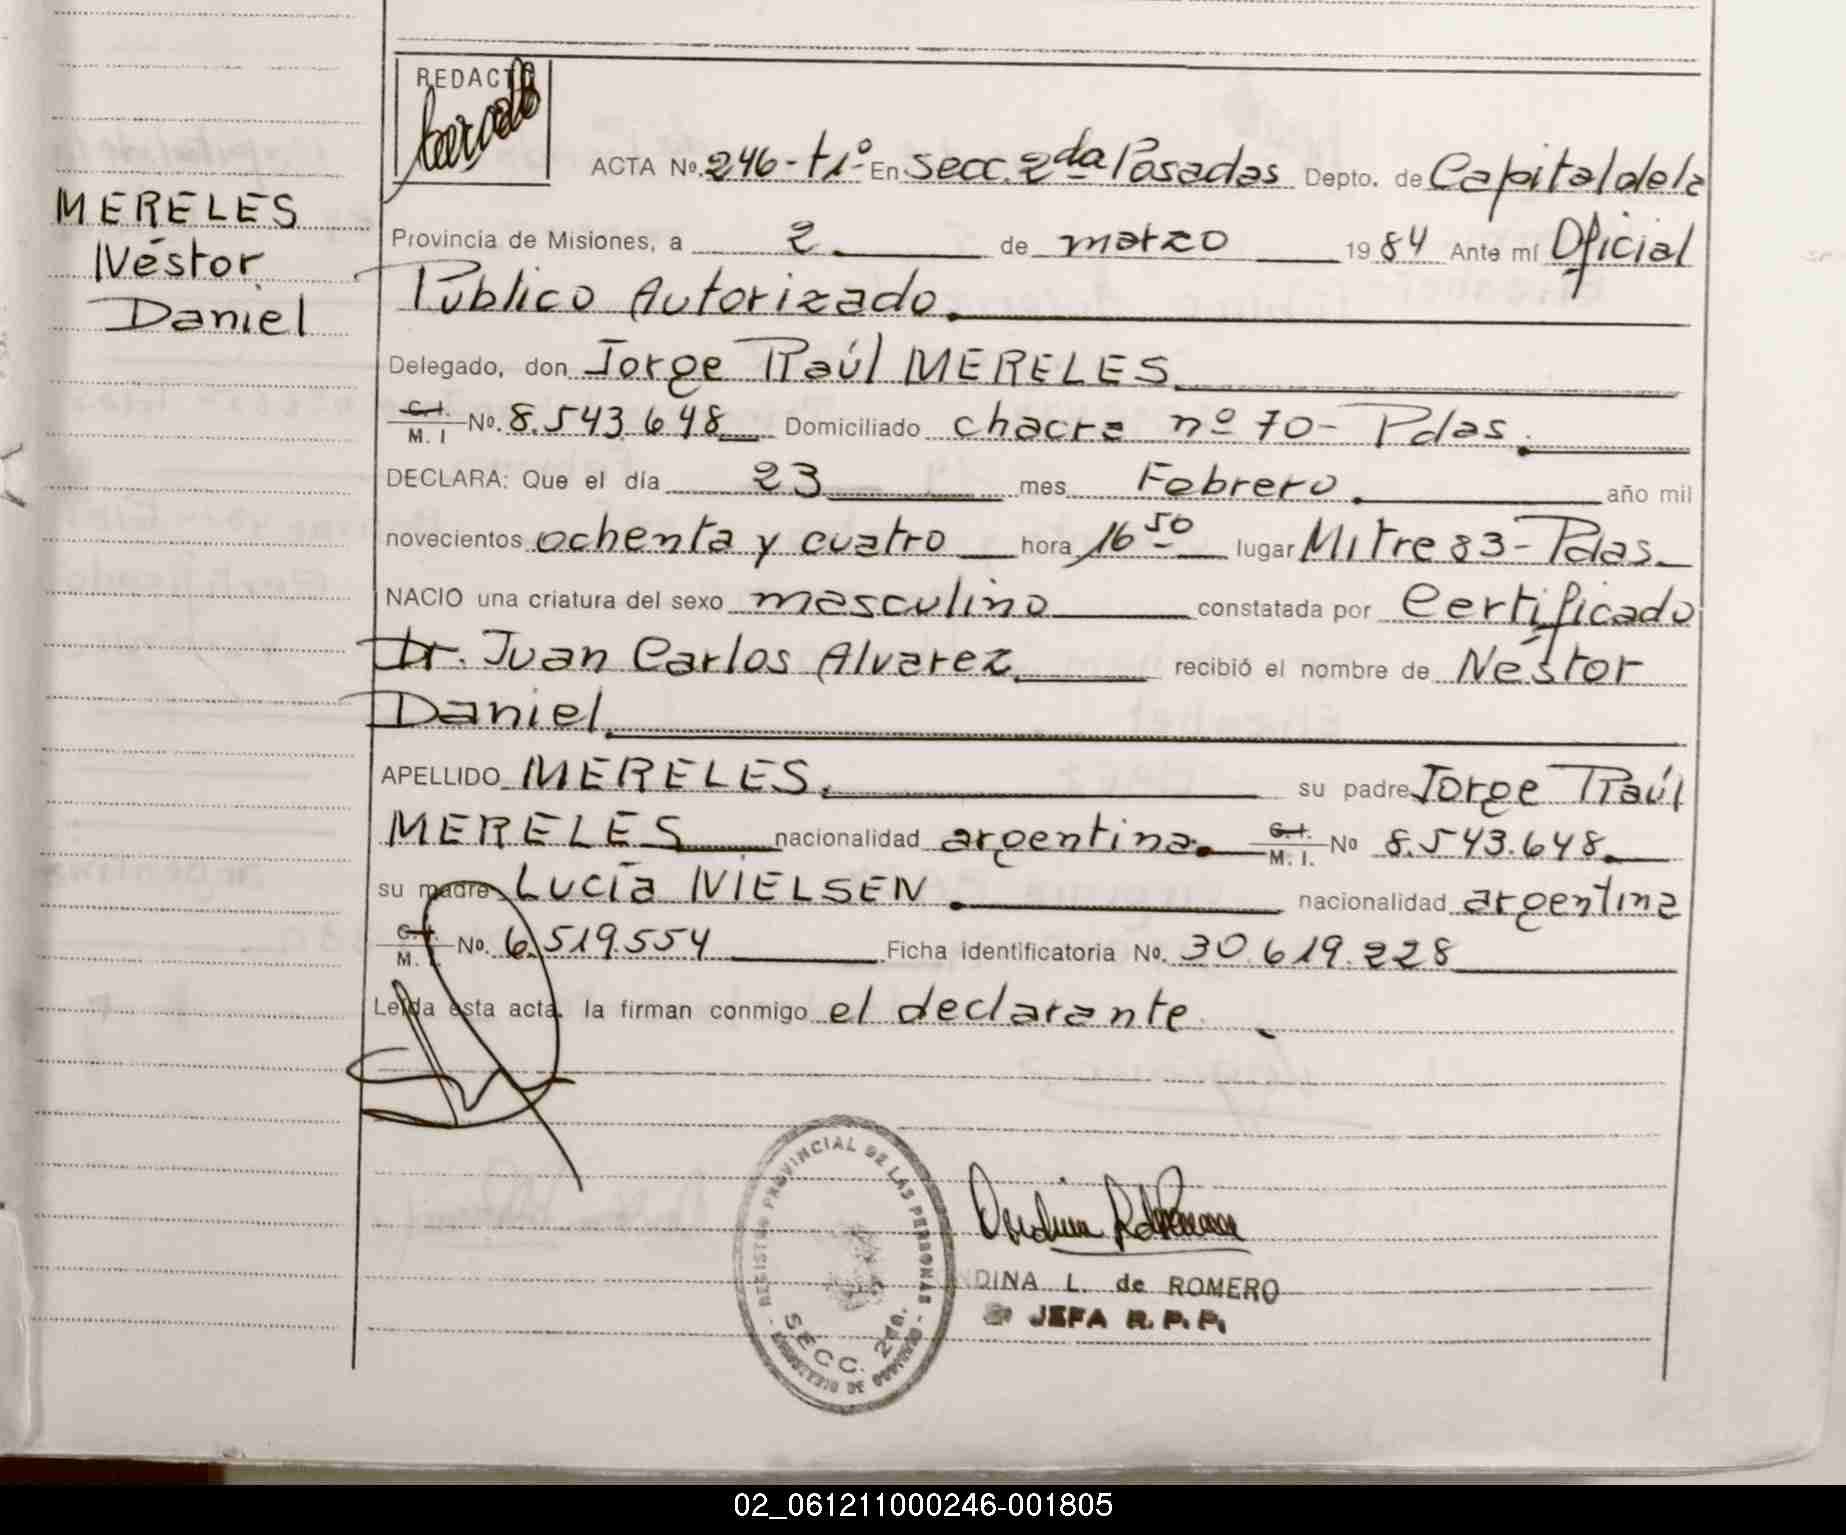 REDACTO
ACTA No. 246-tº1- En secc. 2da Posadas Depto. de Capital de la
MERELES
Néstor
Daniel
Provincia de Misiones, a 2 de marzo 1984 Ante mí Oficial
Público Autorizado.
Delegado, don Jorge Raúl MERELES
C.I. M. I No. 8.543.648 Domiciliado chacra nº 70- Pdas.
DECLARA: Que el día 23 mes Febrero año mil
novecientos ochenta y cuatro hora 16 50 lugar Mitre 83-Pdas.
NACIO una criatura del sexo masculino constatada por Certificado
Dr. Juan Carlos Alvarez recibió el nombre de Néstor
Daniel
APELLIDO MERELES. su padre Jorge Raúl
MERELES nacionalidad argentina. C.I. M. I. No 8.543.648.
su madre Lucía NIELSEN nacionalidad argentina
C.I. M. I. No. 6.519.554 Ficha identificatoria No. 30.619.228
Leída esta acta, la firman conmigo el declarante
REGISTRO PROVINCIAL DE LAS PERSONAS
SECC. 2da.
NDINA L. de ROMERO
JEFA R. P. P.
02_061211000246-001805